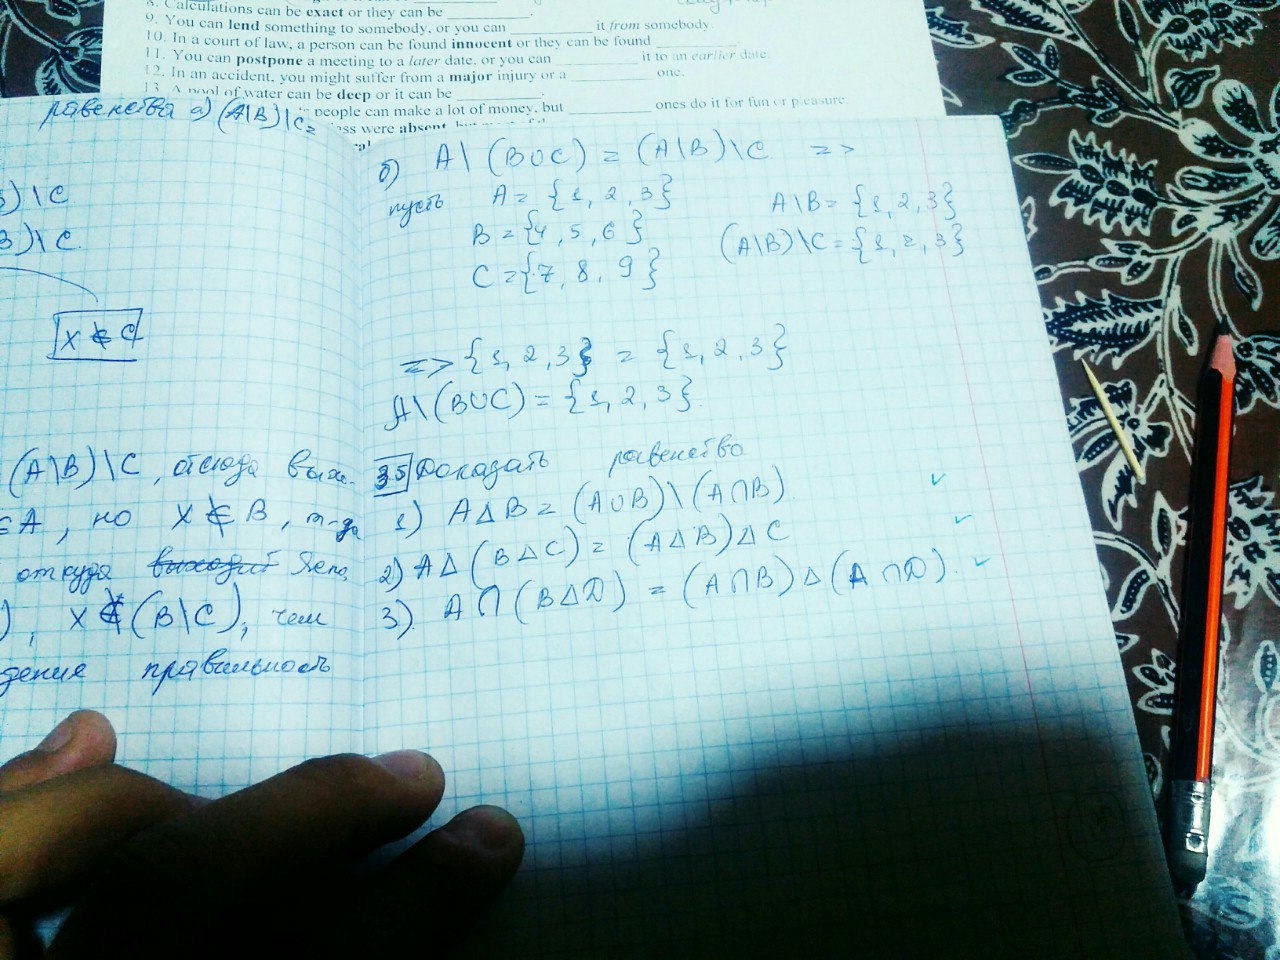 8. Calculations can be exact or they can be __________.
9. You can lend something to somebody, or you can __________ it from somebody.
10. In a court of law, a person can be found innocent or they can be found __________
11. You can postpone a meeting to a later date, or you can __________ it to an earlier date.
12. In an accident, you might suffer from a major injury or a __________ one.
13. A pool of water can be deep or it can be __________.
people can make a lot of money, but __________ ones do it for fun or pleasure.
ass were absent, but
равенства а) (A\B)\C=
)\C
B)\C
x ∉ C
(A\B)\C, отсюда
∈A, но x ∉ B, т-да
откуда
), x ∉ (B\C), чем
дение правильность
б) A\(B∪C) = (A\B)\C =>
пусть A = {1, 2, 3} A\B = {1, 2, 3}
B = {4, 5, 6} (A\B)\C = {1, 2, 3}
C = {7, 8, 9}
=> {1, 2, 3} = {1, 2, 3}
A\(B∪C) = {1, 2, 3}.
35 Доказать равенство
1) A∆B = (A∪B)\(A∩B).
2) A∆(B∆C) = (A∆B)∆C
3). A∩(B∆D) = (A∩B)∆(A∩D).